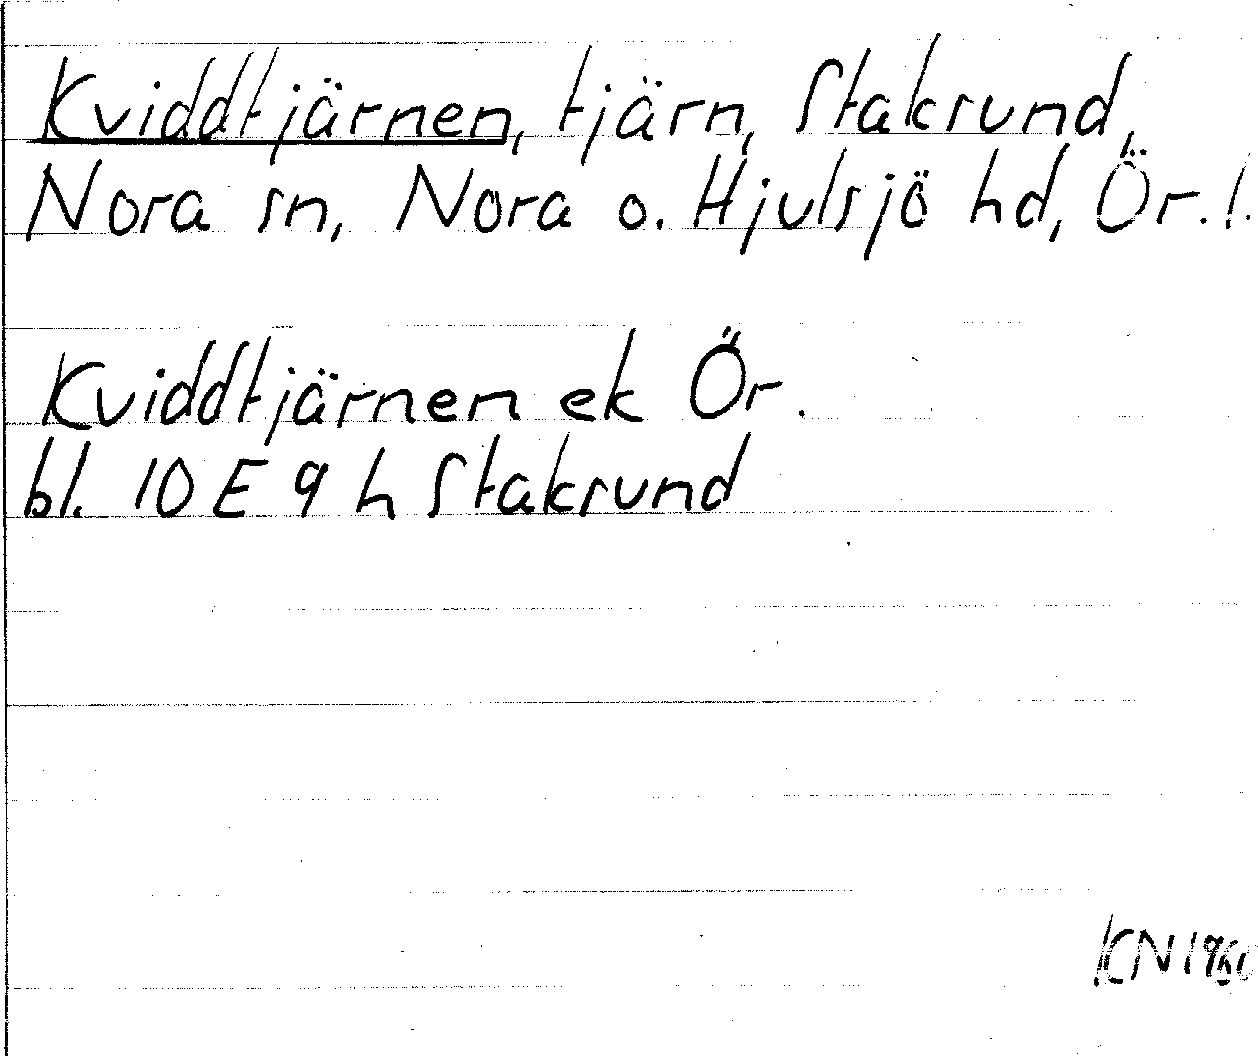 Kviddtjärnen, tjärn, Stakrund,
Nora sn, Nora o. Hjulsjö hd, Ör. l.
Kviddtjärnen ek Ör.
bl. 10 E 9 h Stakrund
KN